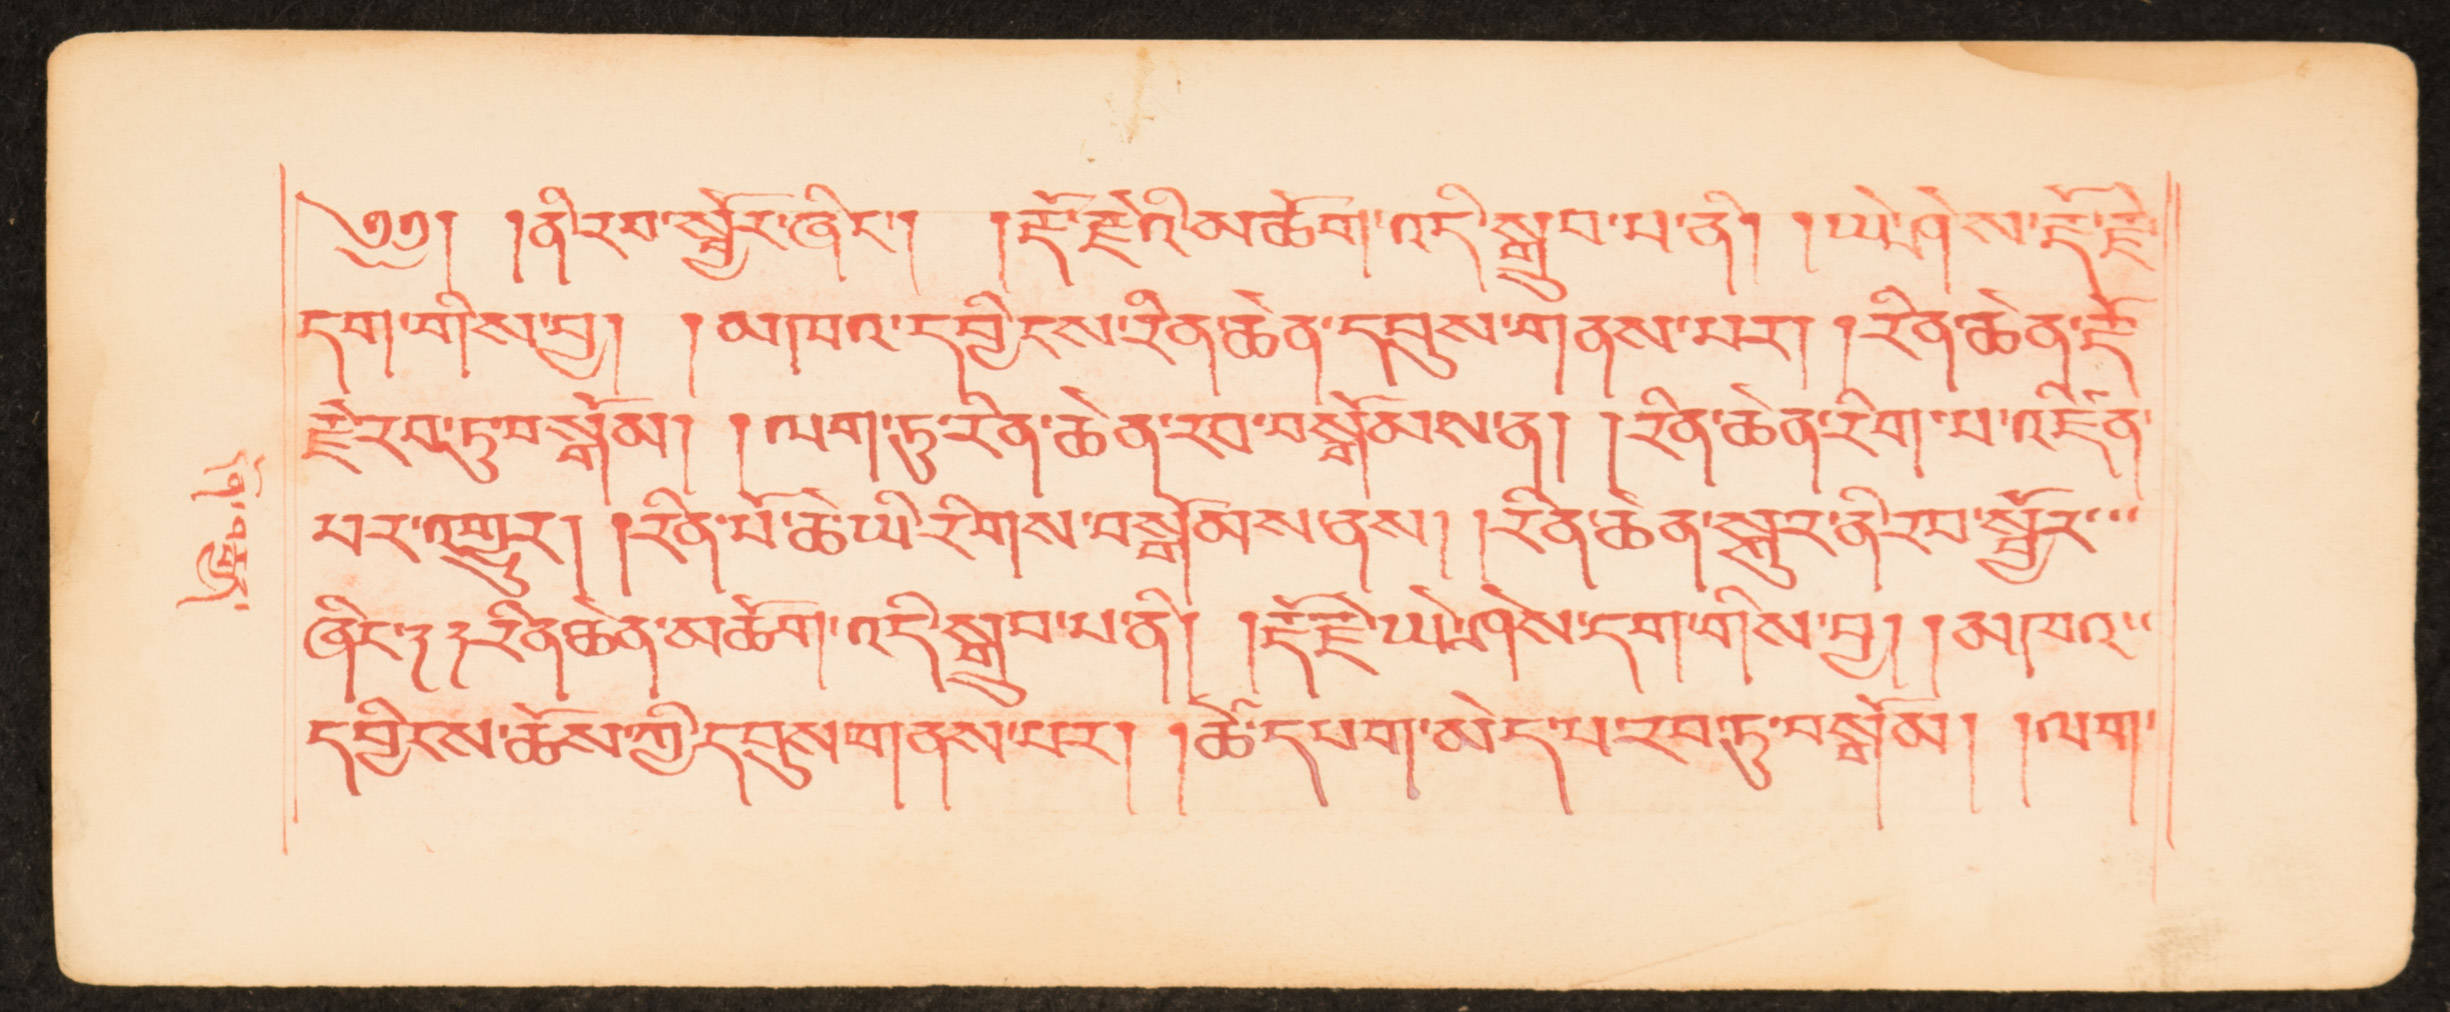 ༄༅། །ནི་རབ་སྦྱོར་ཞིང་། །རྡོ་རྗེའི་མཆོག་འདི་སྒྲུབ་པ་ནི། །ཡེ་ཤེས་རྡོ་རྗེ་
དག་གིས་བྱ། །མཁའ་དབྱིངས་རིན་ཆེན་དབུས་གནས་པར། །རིན་ཆེན་རྡོ་
རྗེ་རབ་ཏུ་བསྒོམ། །ལག་ཏུ་རིན་ཆེན་རབ་བསྒོམས་ན། །རིན་ཆེན་རིག་པ་འཛིན་
པར་འགྱུར། །རིན་པོ་ཆེ་ཡི་རིགས་བསྒོམས་ནས། །རིན་ཆེན་སྐུར་ནི་རབ་སྦྱོར་
ཞིང་༑ ༑རིན་ཆེན་མཆོག་འདི་སྒྲུབ་པ་ནི། །རྡོ་རྗེ་ཡེ་ཤེས་དག་གིས་བྱ། །མཁའ་
དབྱིངས་ཆོས་ཀྱི་དབུས་གནས་པར། །ཚེ་དཔག་མེད་པ་རབ་ཏུ་བསྒོམ། །ལག་